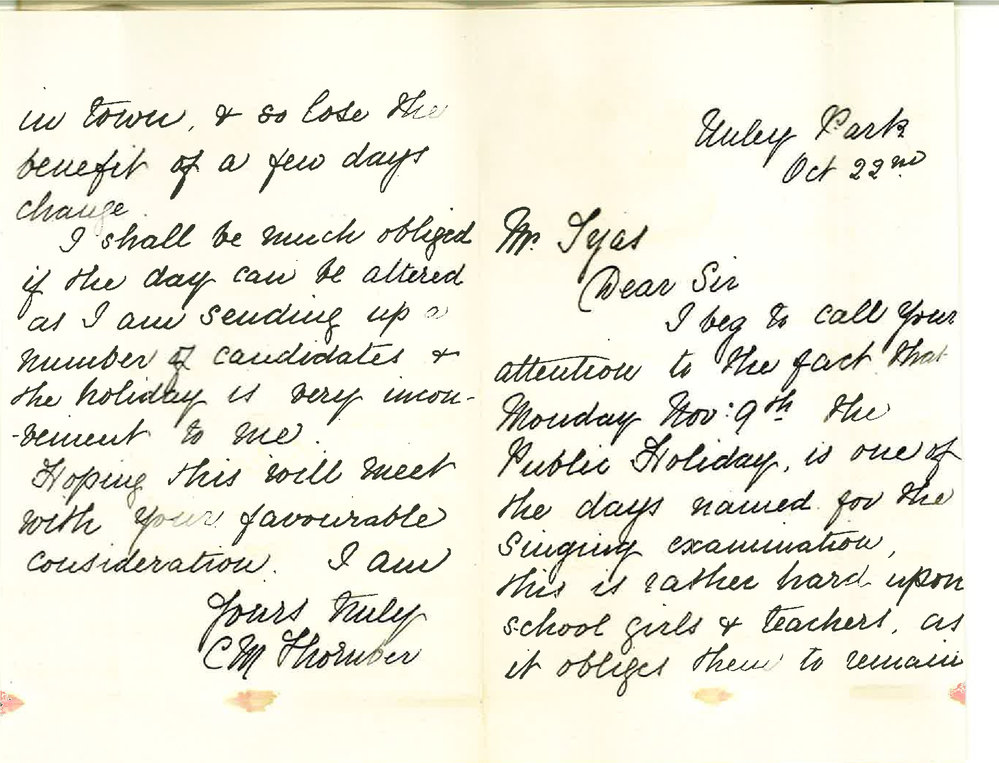 Unley Park
Oct 22nd
Mr. Tyas
Dear Sir
I beg to call your
attention to the fact that
Monday Nov: 9th the
Public Holiday, is one of
the days named for the
Singing examination,
this is rather hard upon
school girls & teachers, as
it obliges them to remain
in town, & so lose the
benefit of a few days
change.
I shall be much obliged
if the day can be altered
as I am sending up a
number of candidates &
the holiday is very incon-
-venient to me.
Hoping this will meet
with your favourable
consideration. I am
Yours truly
C M Thornber